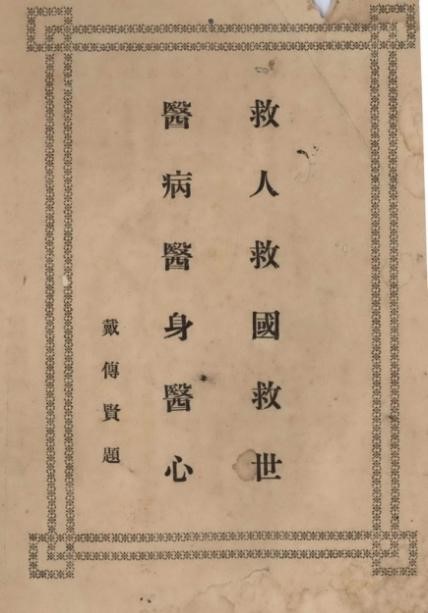 救人救國救世
醫病醫身醫心
戴傳賢題